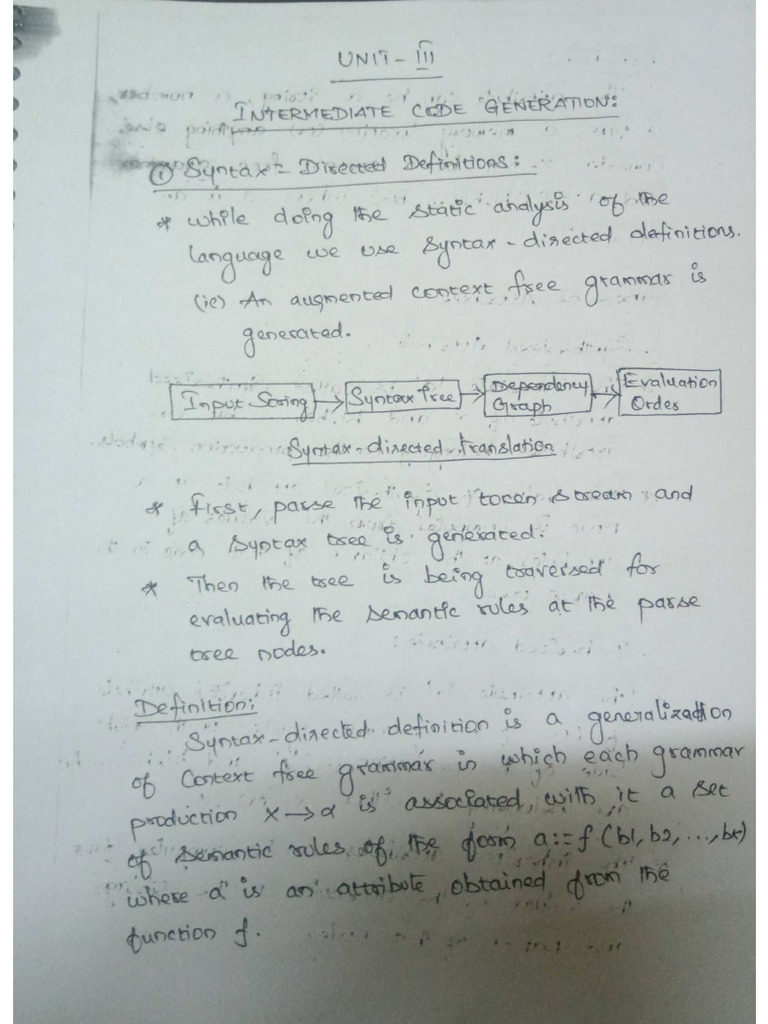 UNIT - III
INTERMEDIATE CODE GENERATION:
① Syntax - Directed Definitions:
* while doing the static analysis of the
language we use syntax - directed definitions.
(ie) An augmented context free grammar is
generated.
Input String → Syntax Tree → Dependency Graph → Evaluation Order
Syntax - directed translation
* First, parse the input token stream and
a syntax tree is generated.
* Then the tree is being traversed for
evaluating the semantic rules at the parse
tree nodes.
Definition:
Syntax - directed definition is a generalization
of Context free grammar in which each grammar
production X → α is associated with it a set
of semantic rules of the form a := f (b1, b2, ..., bk)
where a is an attribute, obtained from the
function f.